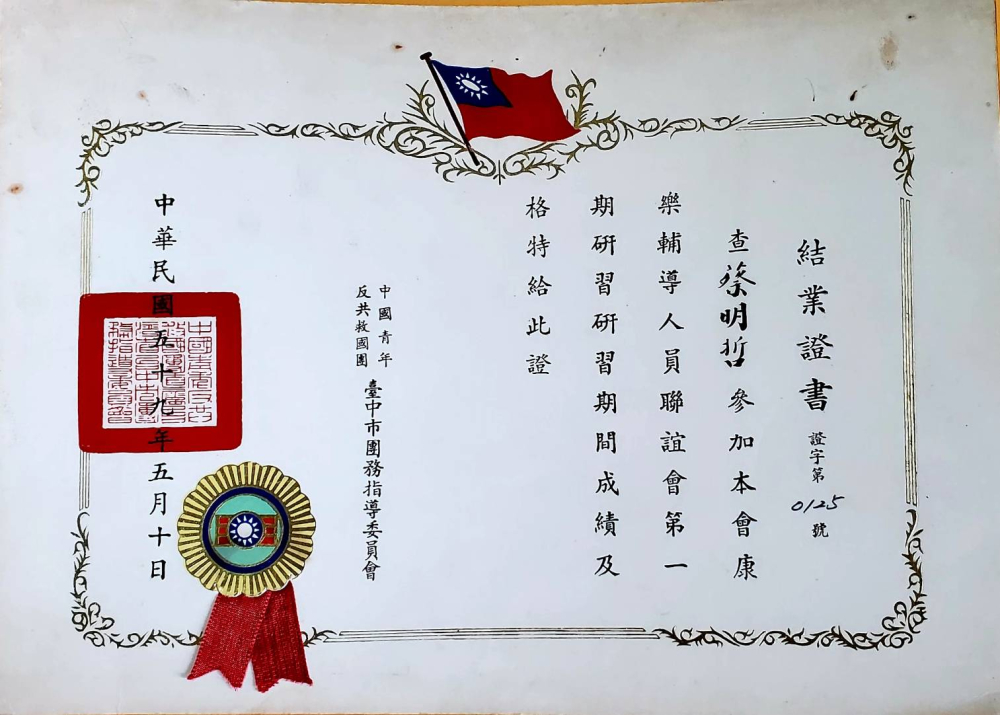 結業證書
證字第0125號
查蔡明哲參加本會康
樂輔導人員聯誼會第一
期研習研習期間成績及
格特給此證
中國青年
反共救國團
臺中市團務指導委員會
中華民國五十九年五月十日